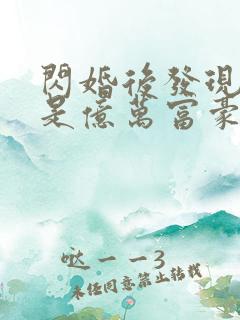 閃婚後發現
是億萬富豪
哒一一3
未经同意禁止转载